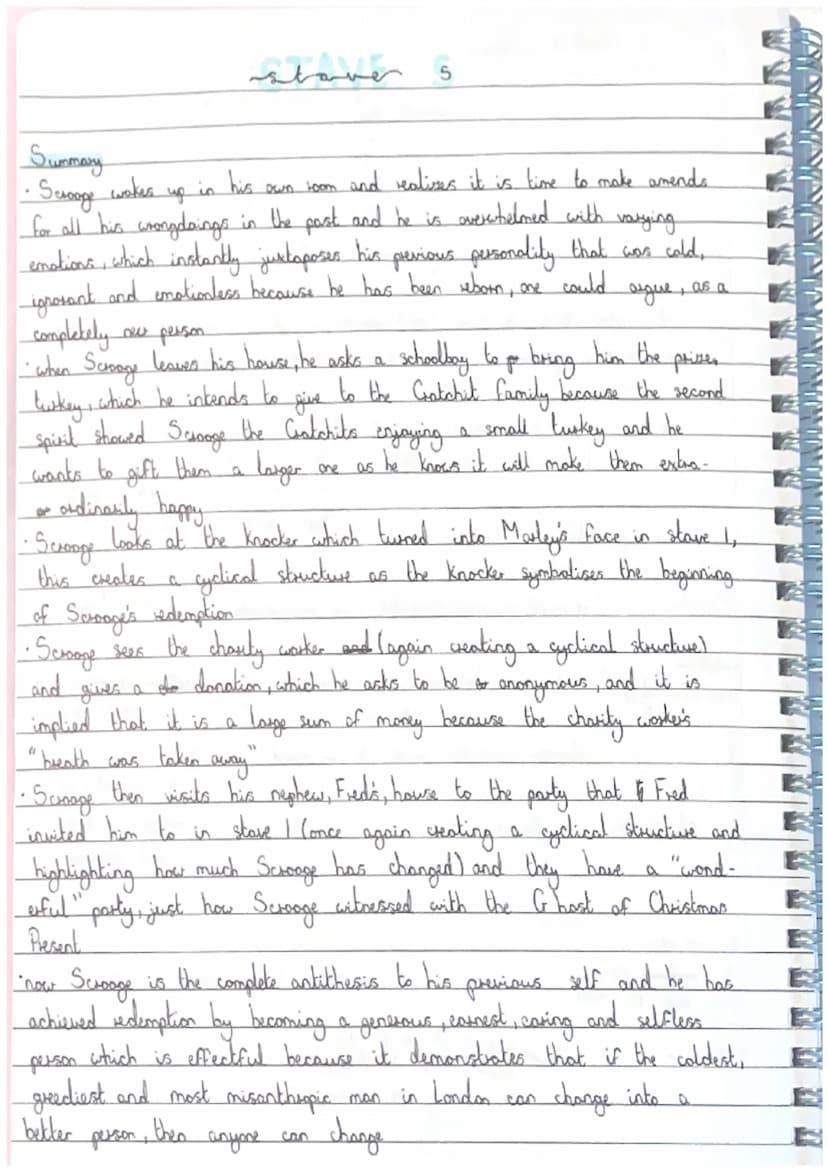 stave 5
Summary
· Scrooge wakes up in his own room and realizes it is time to make amends
for all his wrongdoings in the past and he is overwhelmed with varying
emotions, which instantly juxtaposes his previous personality that was cold,
ignorant and emotionless because he has been reborn, one could argue, as a
completely new person
· when Scrooge leaves his house, he asks a schoolboy to bring him the prize
turkey, which he intends to give to the Cratchit family because the second
spirit showed Scrooge the Cratchits enjoying a small turkey and he
wants to gift them a larger one as he knows it will make them extra-
ordinarily happy
· Scrooge looks at the knocker which turned into Marley's face in stave 1,
this creates a cyclical structure as the knocker symbolises the beginning
of Scrooge's redemption
· Scrooge sees the charity worker (again creating a cyclical structure)
and gives a donation, which he asks to be anonymous, and it is
implied that it is a large sum of money because the charity worker's
"breath was taken away"
· Scrooge then visits his nephew, Fred's, house to the party that Fred
invited him to in stave 1 (once again creating a cyclical structure and
highlighting how much Scrooge has changed) and they have a "wond-
erful" party, just how Scrooge witnessed with the Ghost of Christmas
Present
· now Scrooge is the complete antithesis to his previous self and he has
achieved redemption by becoming a generous, earnest, caring and selfless
person which is effectful because it demonstrates that if the coldest,
greediest and most misanthropic man in London can change into a
better person, then anyone can change